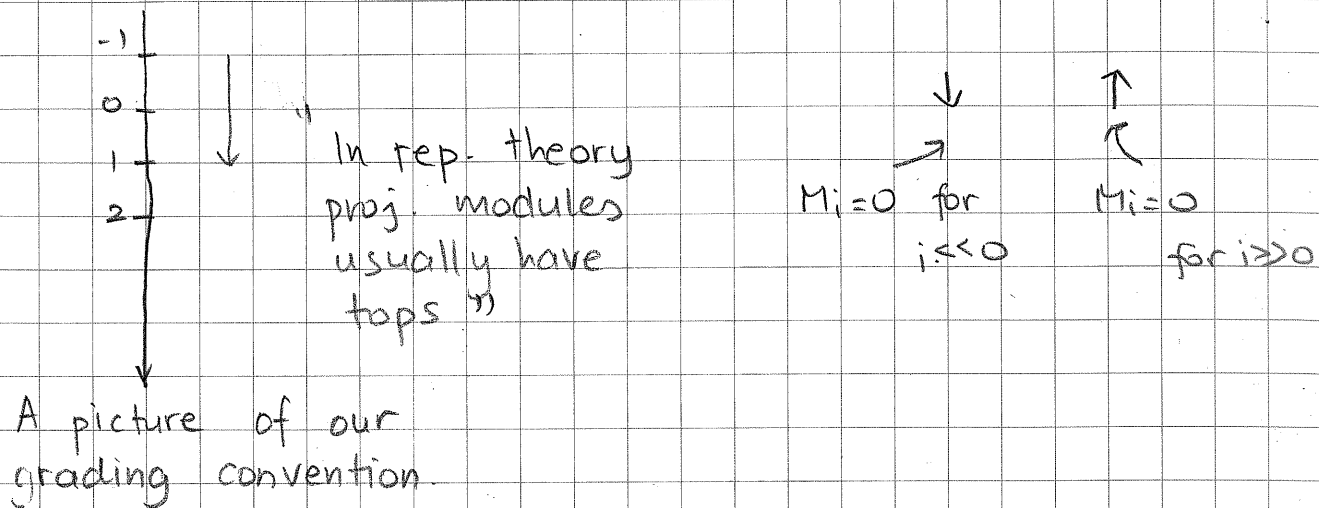 -1
0
1
2
" In rep. theory
proj. modules
usually have
tops "
↓
Mi=0 for
i<<0
↑
Mi=0
for i>>0
A picture of our
grading convention.